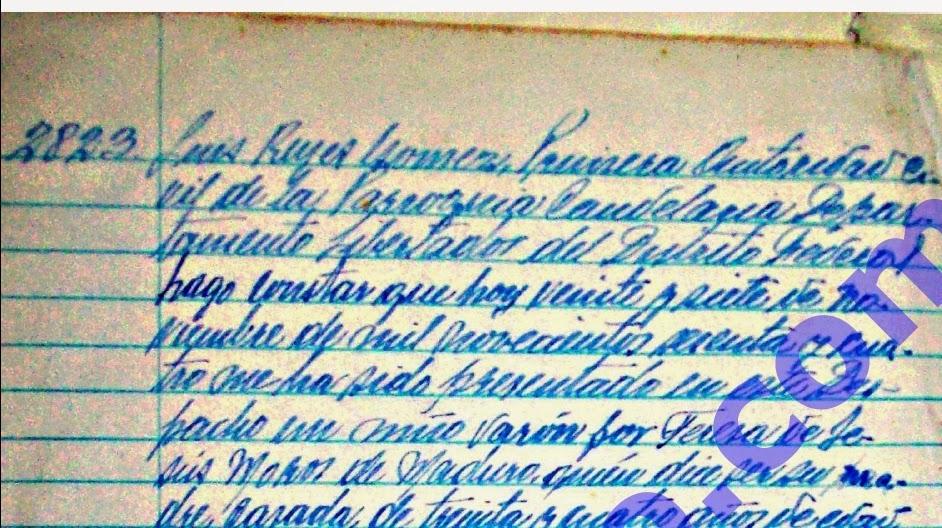 2823 Luis Reyes Gomez, Primera Autoridad Ci-
vil de la Parroquia Candelaria Depar-
tamento Libertador del Distrito Federal
hago constar que hoy veinte y siete de no-
viembre de mil novecientos sesenta y cua-
tro me ha sido presentado en este Des-
pacho un niño varón por Teresa de Je-
sús Moros de Maduro, quien dice ser su ma-
dre, casada, de treinta y cuatro años de edad
.com